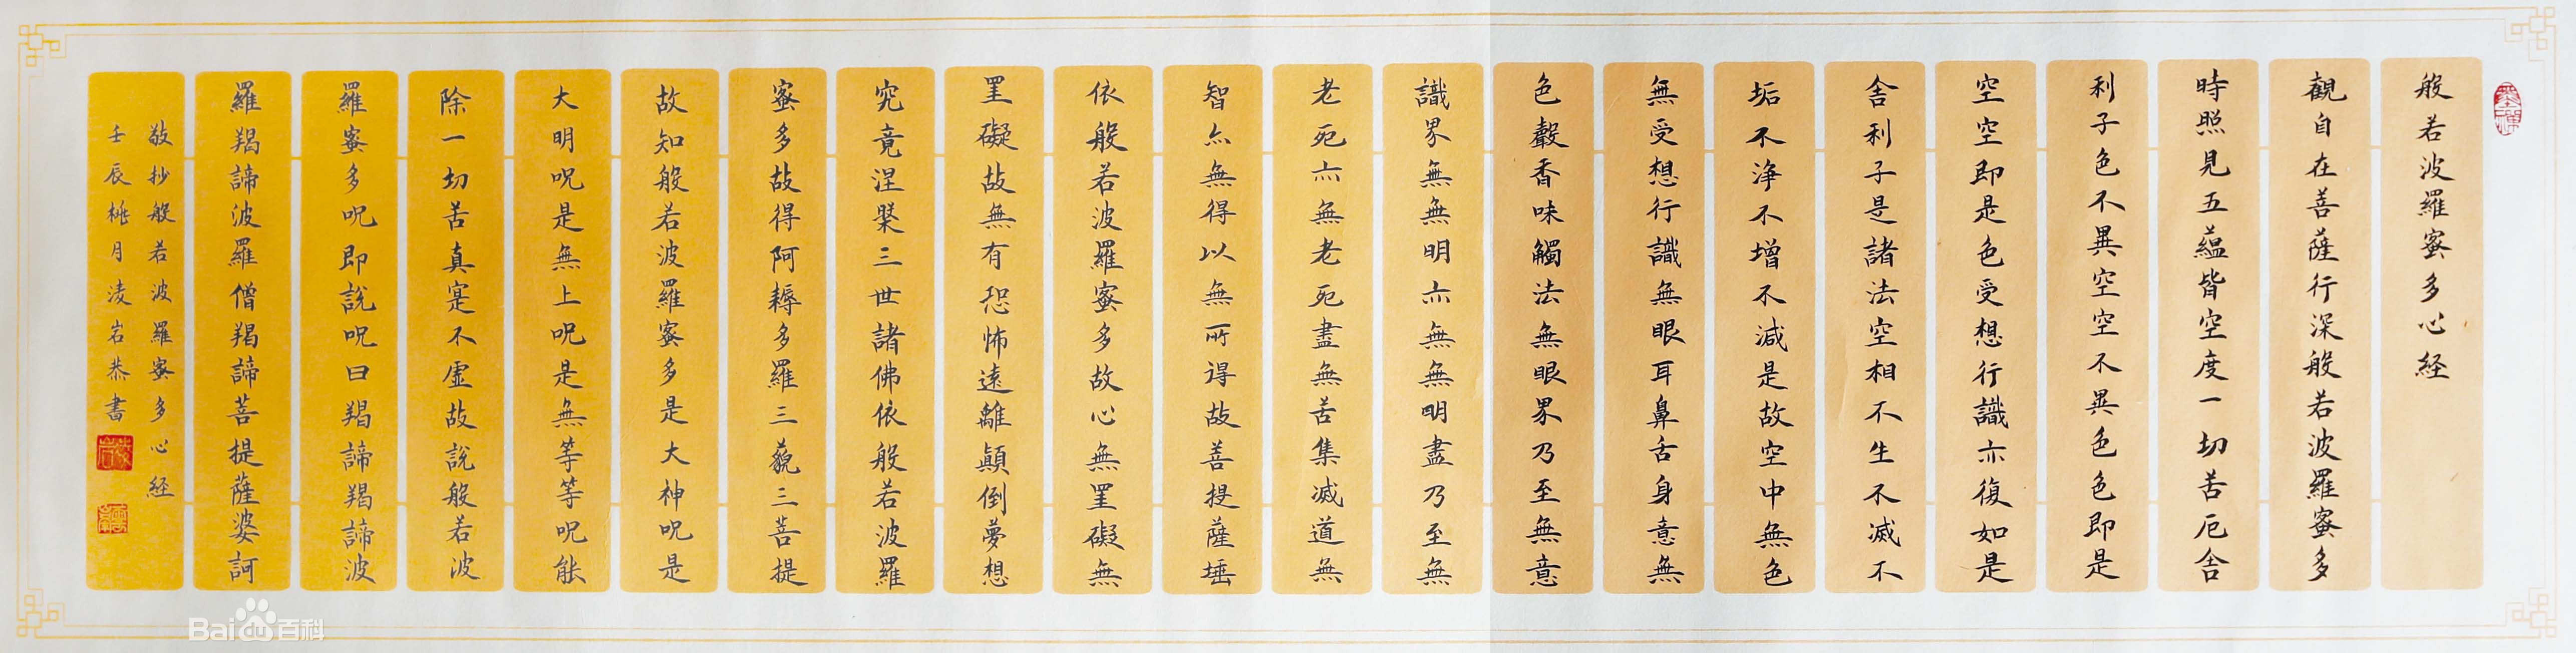 般若波羅蜜多心経
觀自在菩薩行深般若波羅蜜多
時照見五蘊皆空度一切苦厄舍
利子色不異空空不異色色即是
空空即是色受想行識亦復如是
舍利子是諸法空相不生不滅不
垢不淨不增不減是故空中無色
無受想行識無眼耳鼻舌身意無
色聲香味觸法無眼界乃至無意
識界無無明亦無無明盡乃至無
老死亦無老死盡無苦集滅道無
智亦無得以無所得故菩提薩埵
依般若波羅蜜多故心無罣礙無
罣礙故無有恐怖遠離顛倒夢想
究竟涅槃三世諸佛依般若波羅
蜜多故得阿耨多羅三藐三菩提
故知般若波羅蜜多是大神呪是
大明呪是無上呪是無等等呪能
除一切苦真寔不虛故說般若波
羅蜜多呪即說呪曰羯諦羯諦波
羅羯諦波羅僧羯諦菩提薩婆訶
敬抄般若波羅蜜多心経
壬辰桃月淩岩恭書
Baidu百科